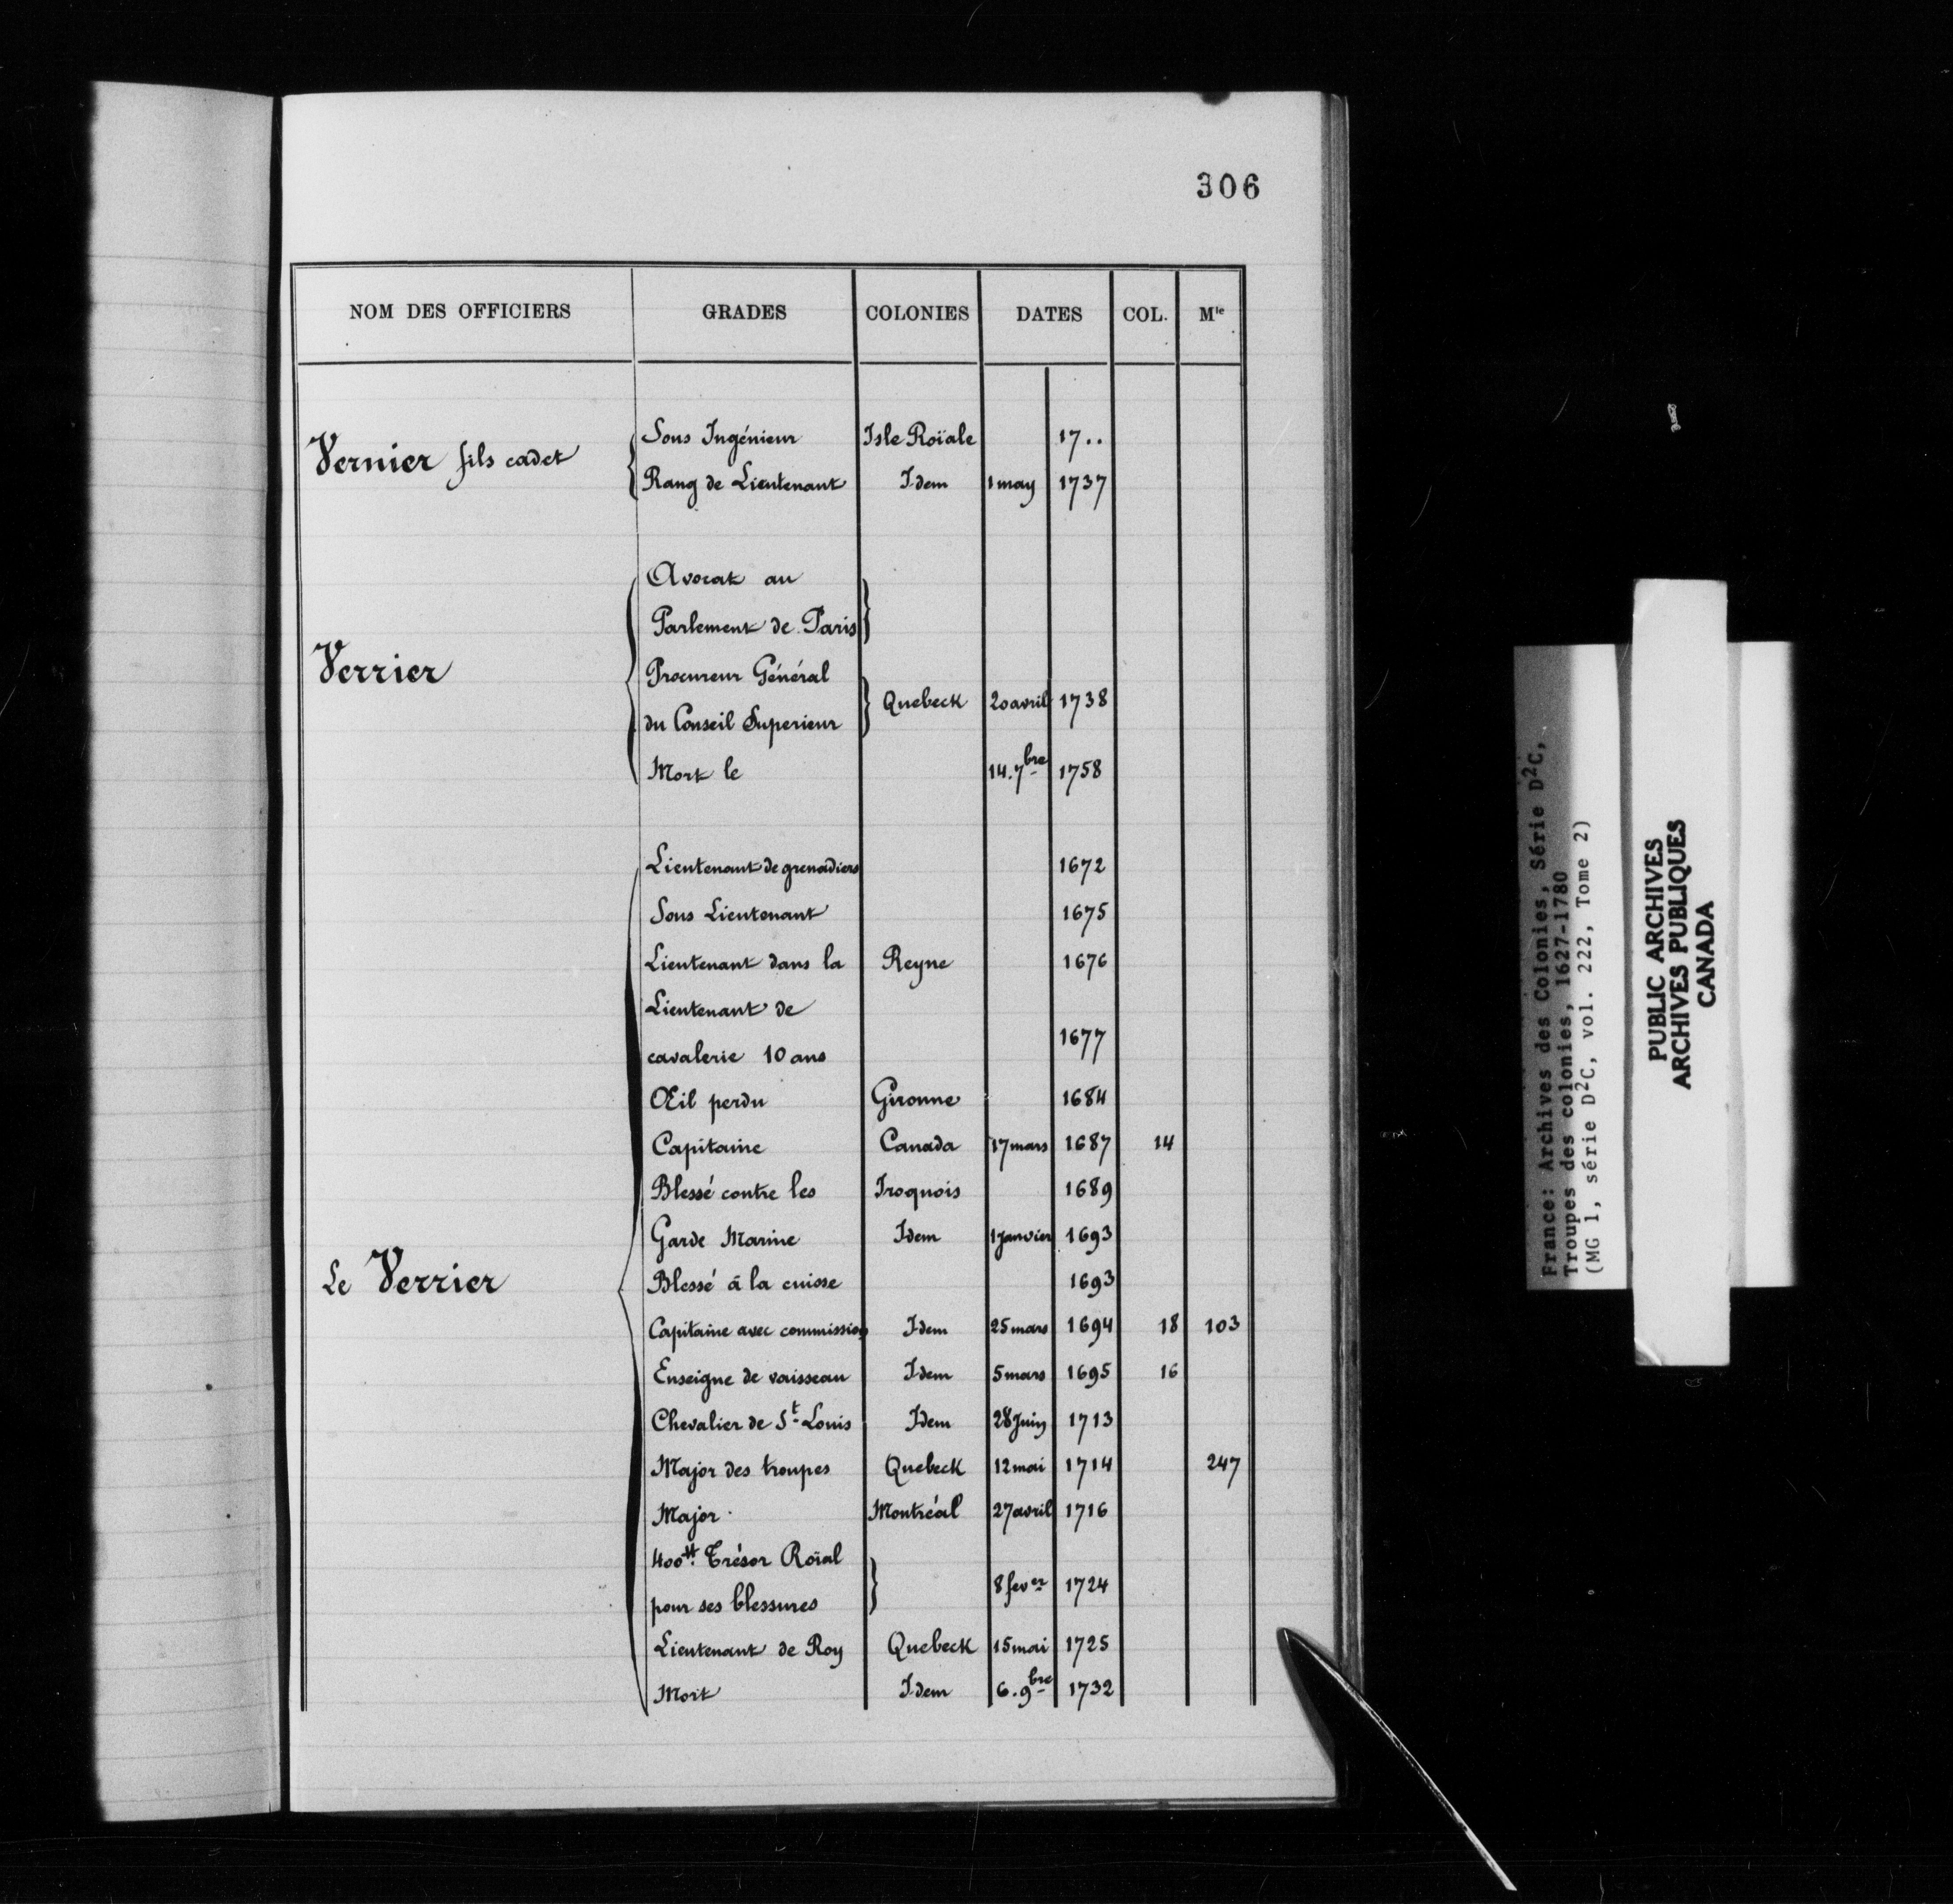 306
NOM DES OFFICIERS GRADES COLONIES DATES COL. Mle
Vernier fils cadet
Sous Ingénieur Isle Roïale 17..
Rang de Lieutenant Idem 1 may 1737
Verrier
Avocat au
Parlement de Paris
Procureur Général
du Conseil Superieur Quebeck 20 avril 1738
Mort le 14. 7bre 1758
Le Verrier
Lieutenant de grenadiers 1672
Sous Lieutenant 1675
Lieutenant dans la Reyne 1676
Lieutenant de
cavalerie 10 ans 1677
Œil perdu Gironne 1684
Capitaine Canada 17 mars 1687 14
Blessé contre les Iroquois 1689
Garde Marine Idem 1 janvier 1693
Blessé à la cuisse 1693
Capitaine avec commission Idem 25 mars 1694 18 103
Enseigne de vaisseau Idem 5 mars 1695 16
Chevalier de St Louis Idem 28 Juin 1713
Major des troupes Quebeck 12 mai 1714 247
Major Montréal 27 avril 1716
400tt Trésor Roïal
pour ses blessures 8 fever 1724
Lieutenant de Roy Quebeck 15 mai 1725
Mort Idem 6. 9bre 1732
France: Archives des Colonies, Série D2C,
Troupes des colonies, 1627-1780
(MG 1, série D2C, vol. 222, Tome 2)
PUBLIC ARCHIVES
ARCHIVES PUBLIQUES
CANADA